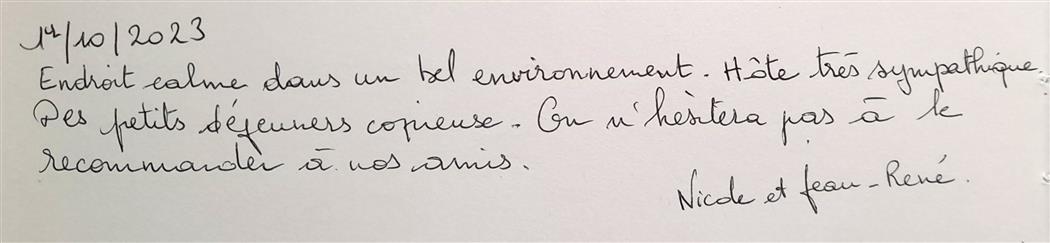 14/10/2023
Endroit calme dans un bel environnement. Hôte très sympathique.
Des petits déjeuners copieuse. On n'hésitera pas à le
recommander à nos amis.
Nicole et Jean-René.